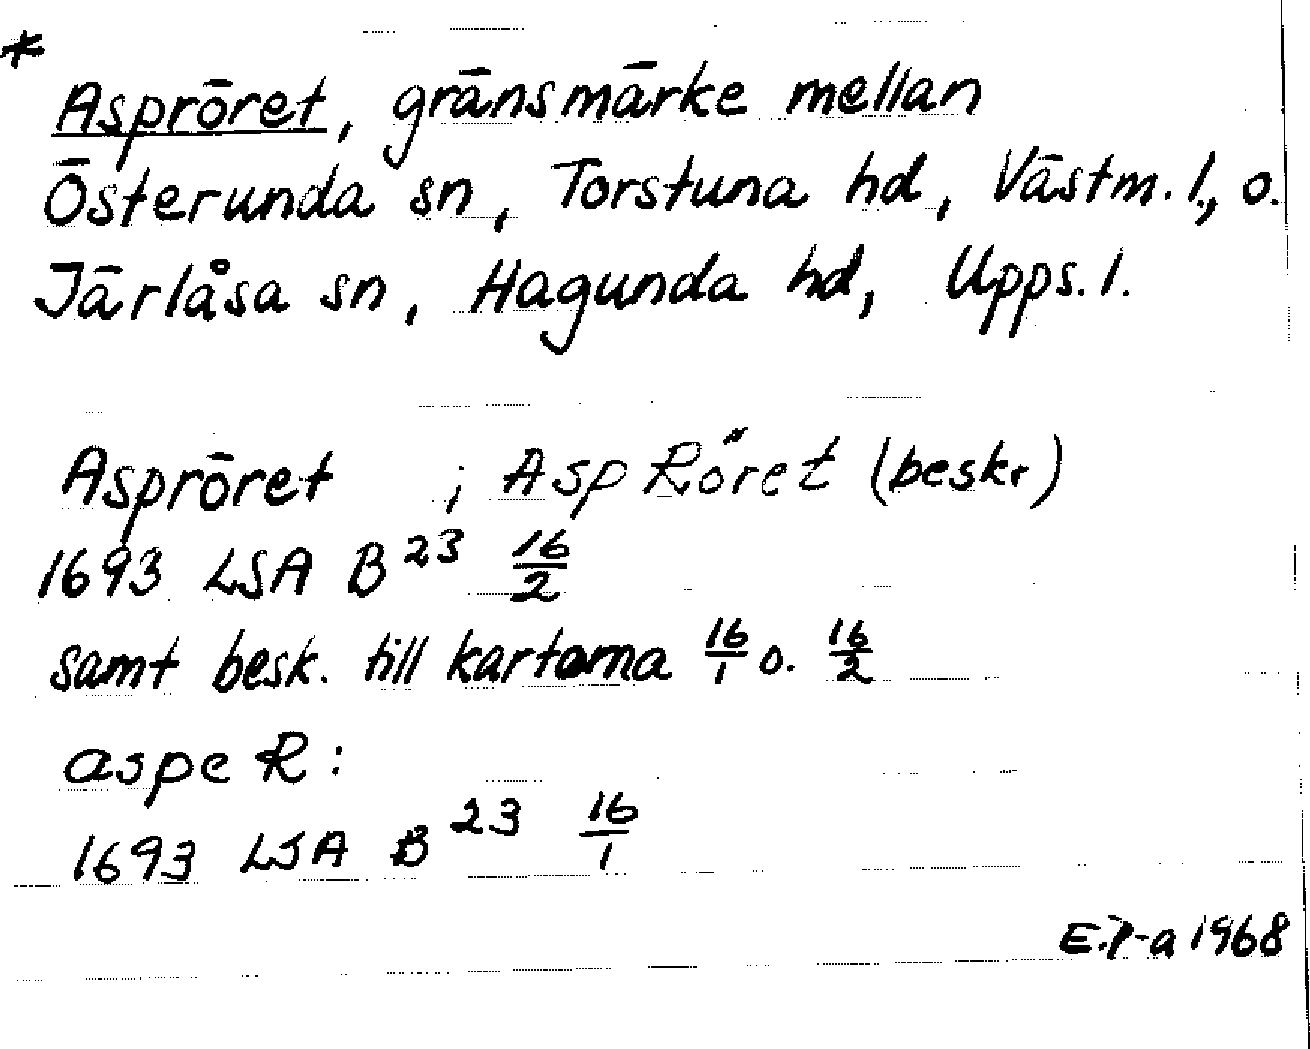 *
Asproret, gränsmärke mellan
Österunda sn, Torstuna hd, Västm. l., o.
Järlåsa sn, Hagunda hd, Upps. l.
Aspröret ; Asp Röret (beskr)
1693 LSA B 23 16/2
samt besk. till kartorna 16/1 o. 16/2
aspe R:
1693 LSA B 23 16/1
E.P-a 1968